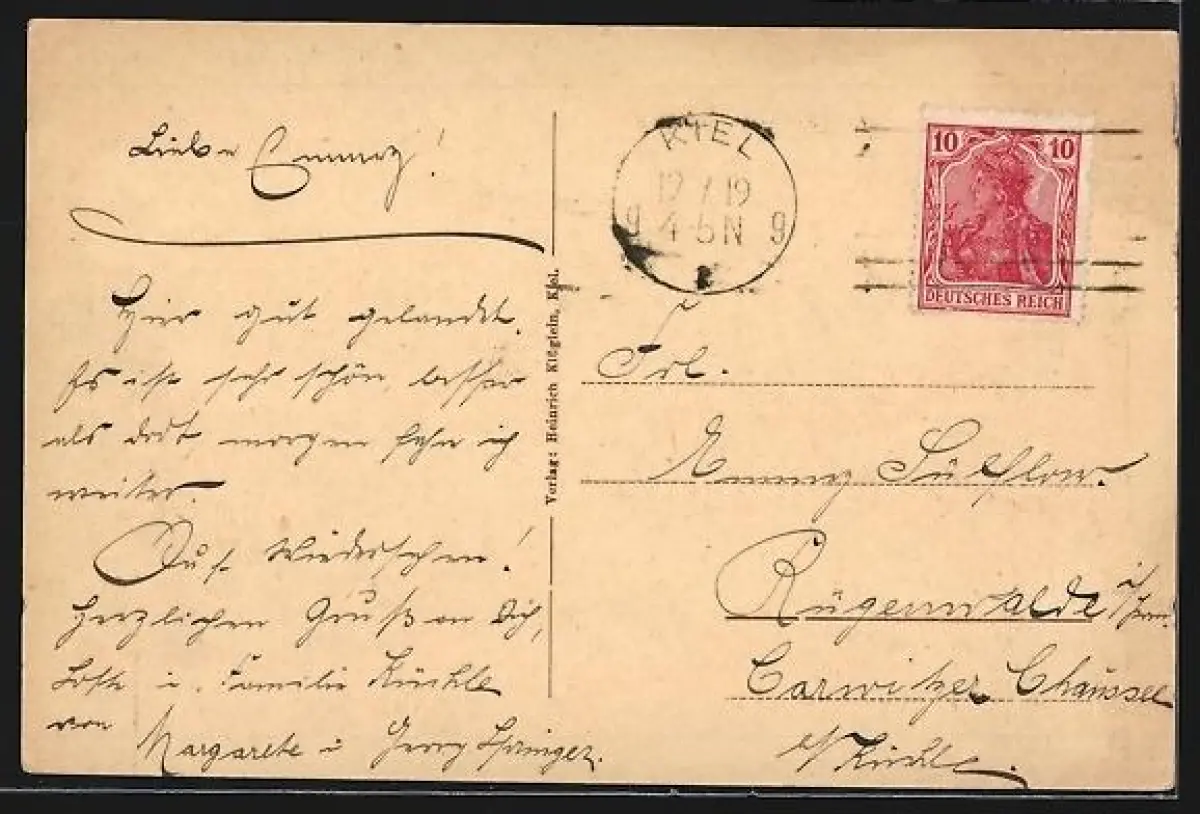 Liebe Emmy!
Hier gut gelandet.
Es ist sehr schön, besser
als dort morgen fahre ich
weiter.
Auf Wiedersehen!
Herzlichen Gruß an Dich,
Lotte u. Familie Küchle
von
Margarete u Georg Springer.
Verlag: Heinrich Klüglein, Kiel.
KIEL
12 7 19
9 4-5N 9
10 10
DEUTSCHES REICH
Frl.
Emmy
Rügenwalde i/Pom.
Carwitzer Chaussee
b/ Küchle.